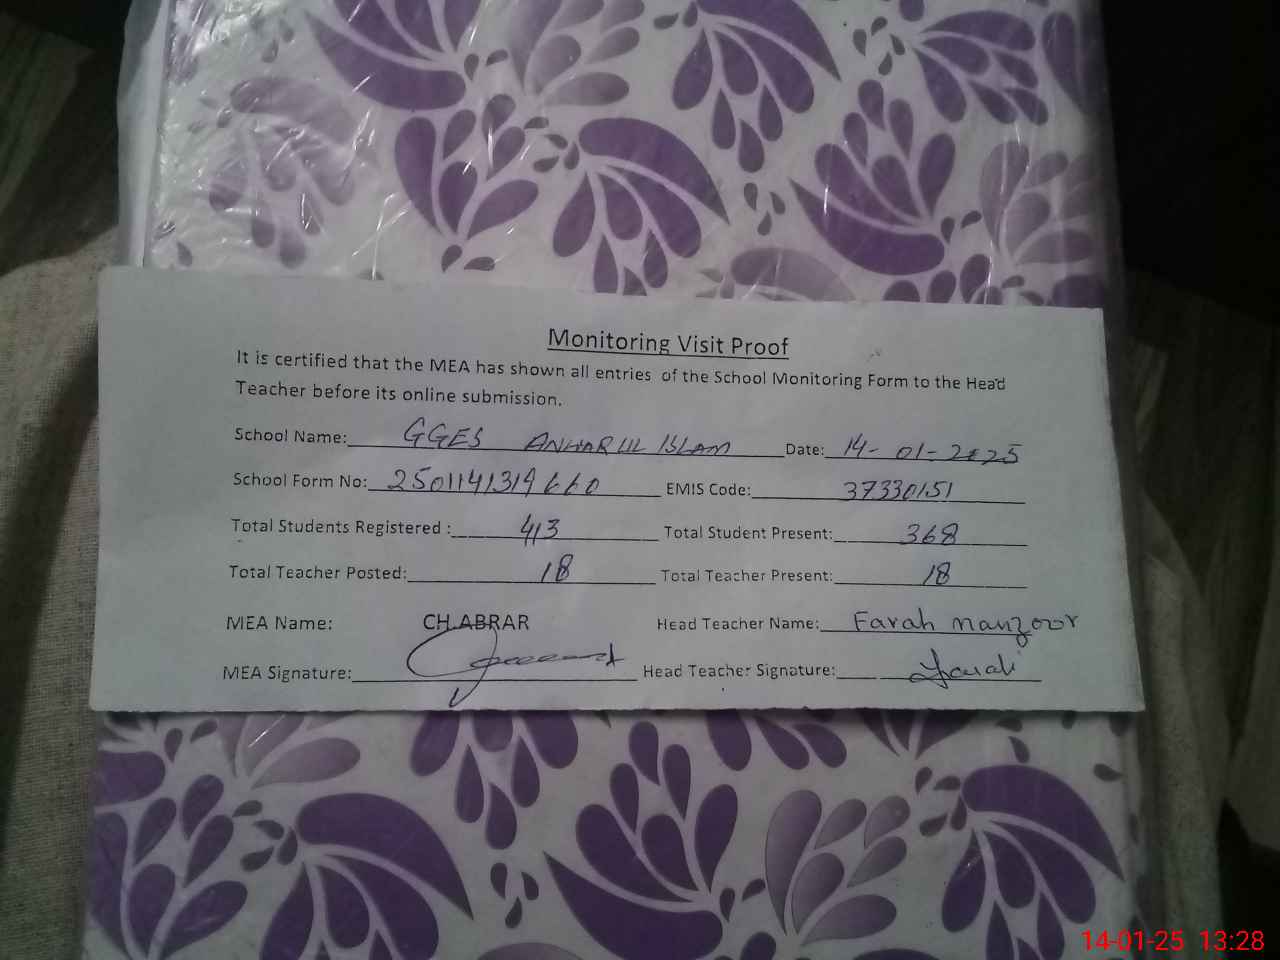 Monitoring Visit Proof
It is certified that the MEA has shown all entries of the School Monitoring Form to the Head
Teacher before its online submission.
School Name: GGES ANWAR UL ISLAM Date: 14-01-2025
School Form No: 2501141319660 EMIS Code: 37330151
Total Students Registered : 413 Total Student Present: 368
Total Teacher Posted: 18 Total Teacher Present: 18
MEA Name: CH.ABRAR Head Teacher Name: Farah Manzoor
MEA Signature: Head Teacher Signature: Farah
14-01-25 13:28